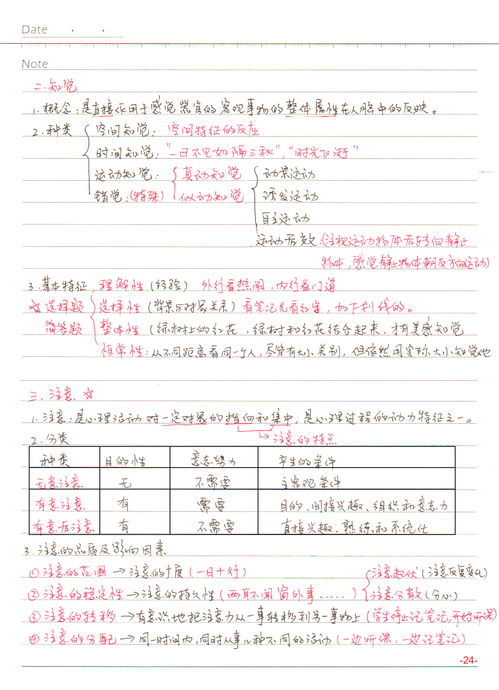 Date · ·
Note
二.知觉
1.概念:是直接作用于感觉器官的客观事物的整体属性在人脑中的反映。
2.种类 空间知觉:空间特征的反应
时间知觉:"一日不见如隔三秋","时光飞逝"
运动知觉: 真动知觉 动景运动
错觉:(特殊) 似动知觉 诱发运动
自主运动
运动后效:(注视运动物体后转向静止
物体,感觉静止物体朝反方向运动)
3.基本特征 理解性(经验) 外行看热闹,内行看门道
☆选择题 选择性(背景与对象关系)看笔记先看红字,如下划线的。
简答题 整体性(绿树上的红花,绿树和红花结合起来,才有美感知觉
恒常性:从不同距离看同一个人,尽管有大小差别,但依然用实际大小知觉他
三.注意 ☆
1.注意:是心理活动对一定对象的指向和集中,是心理过程的动力特征之一。
2.分类 →注意的特点
种类 目的性 意志努力 产生的条件
无意注意 无 不需要 主客观条件
有意注意 有 需要 目的、间接兴趣、组织和意志力
有意后注意 有 不需要 直接兴趣、熟练和系统化
3.注意的品质及影响因素
①注意的范围→注意的广度(一目十行) 注意起伏(注意反复变化)
②注意的稳定性→注意的持久性(两耳不闻窗外事......) 注意分散(分心)
③注意的转移→有意识地把注意力从一事转移到另一事物上(学生停止记笔记,开始听课)
④注意的分配→同一时间内,同时从事几种不同的活动(一边听课,一边记笔记)
-24-